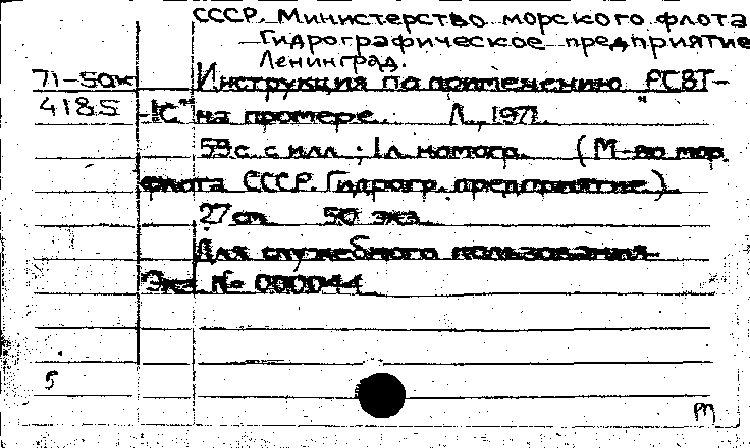 СССР. Министерство морского флота
Гидрографическое предприятие
Ленинград.
71-50дк Инструкция по применению "РСВТ-
4185 -1С" на промере. Л., 1971.
59 с. с илл.; 1 л. номогр. (М-во мор.
флота СССР. Гидрогр. предприятие).
27 см. 50 экз.
Для служебного пользования.
Экз. № 000044
5
m